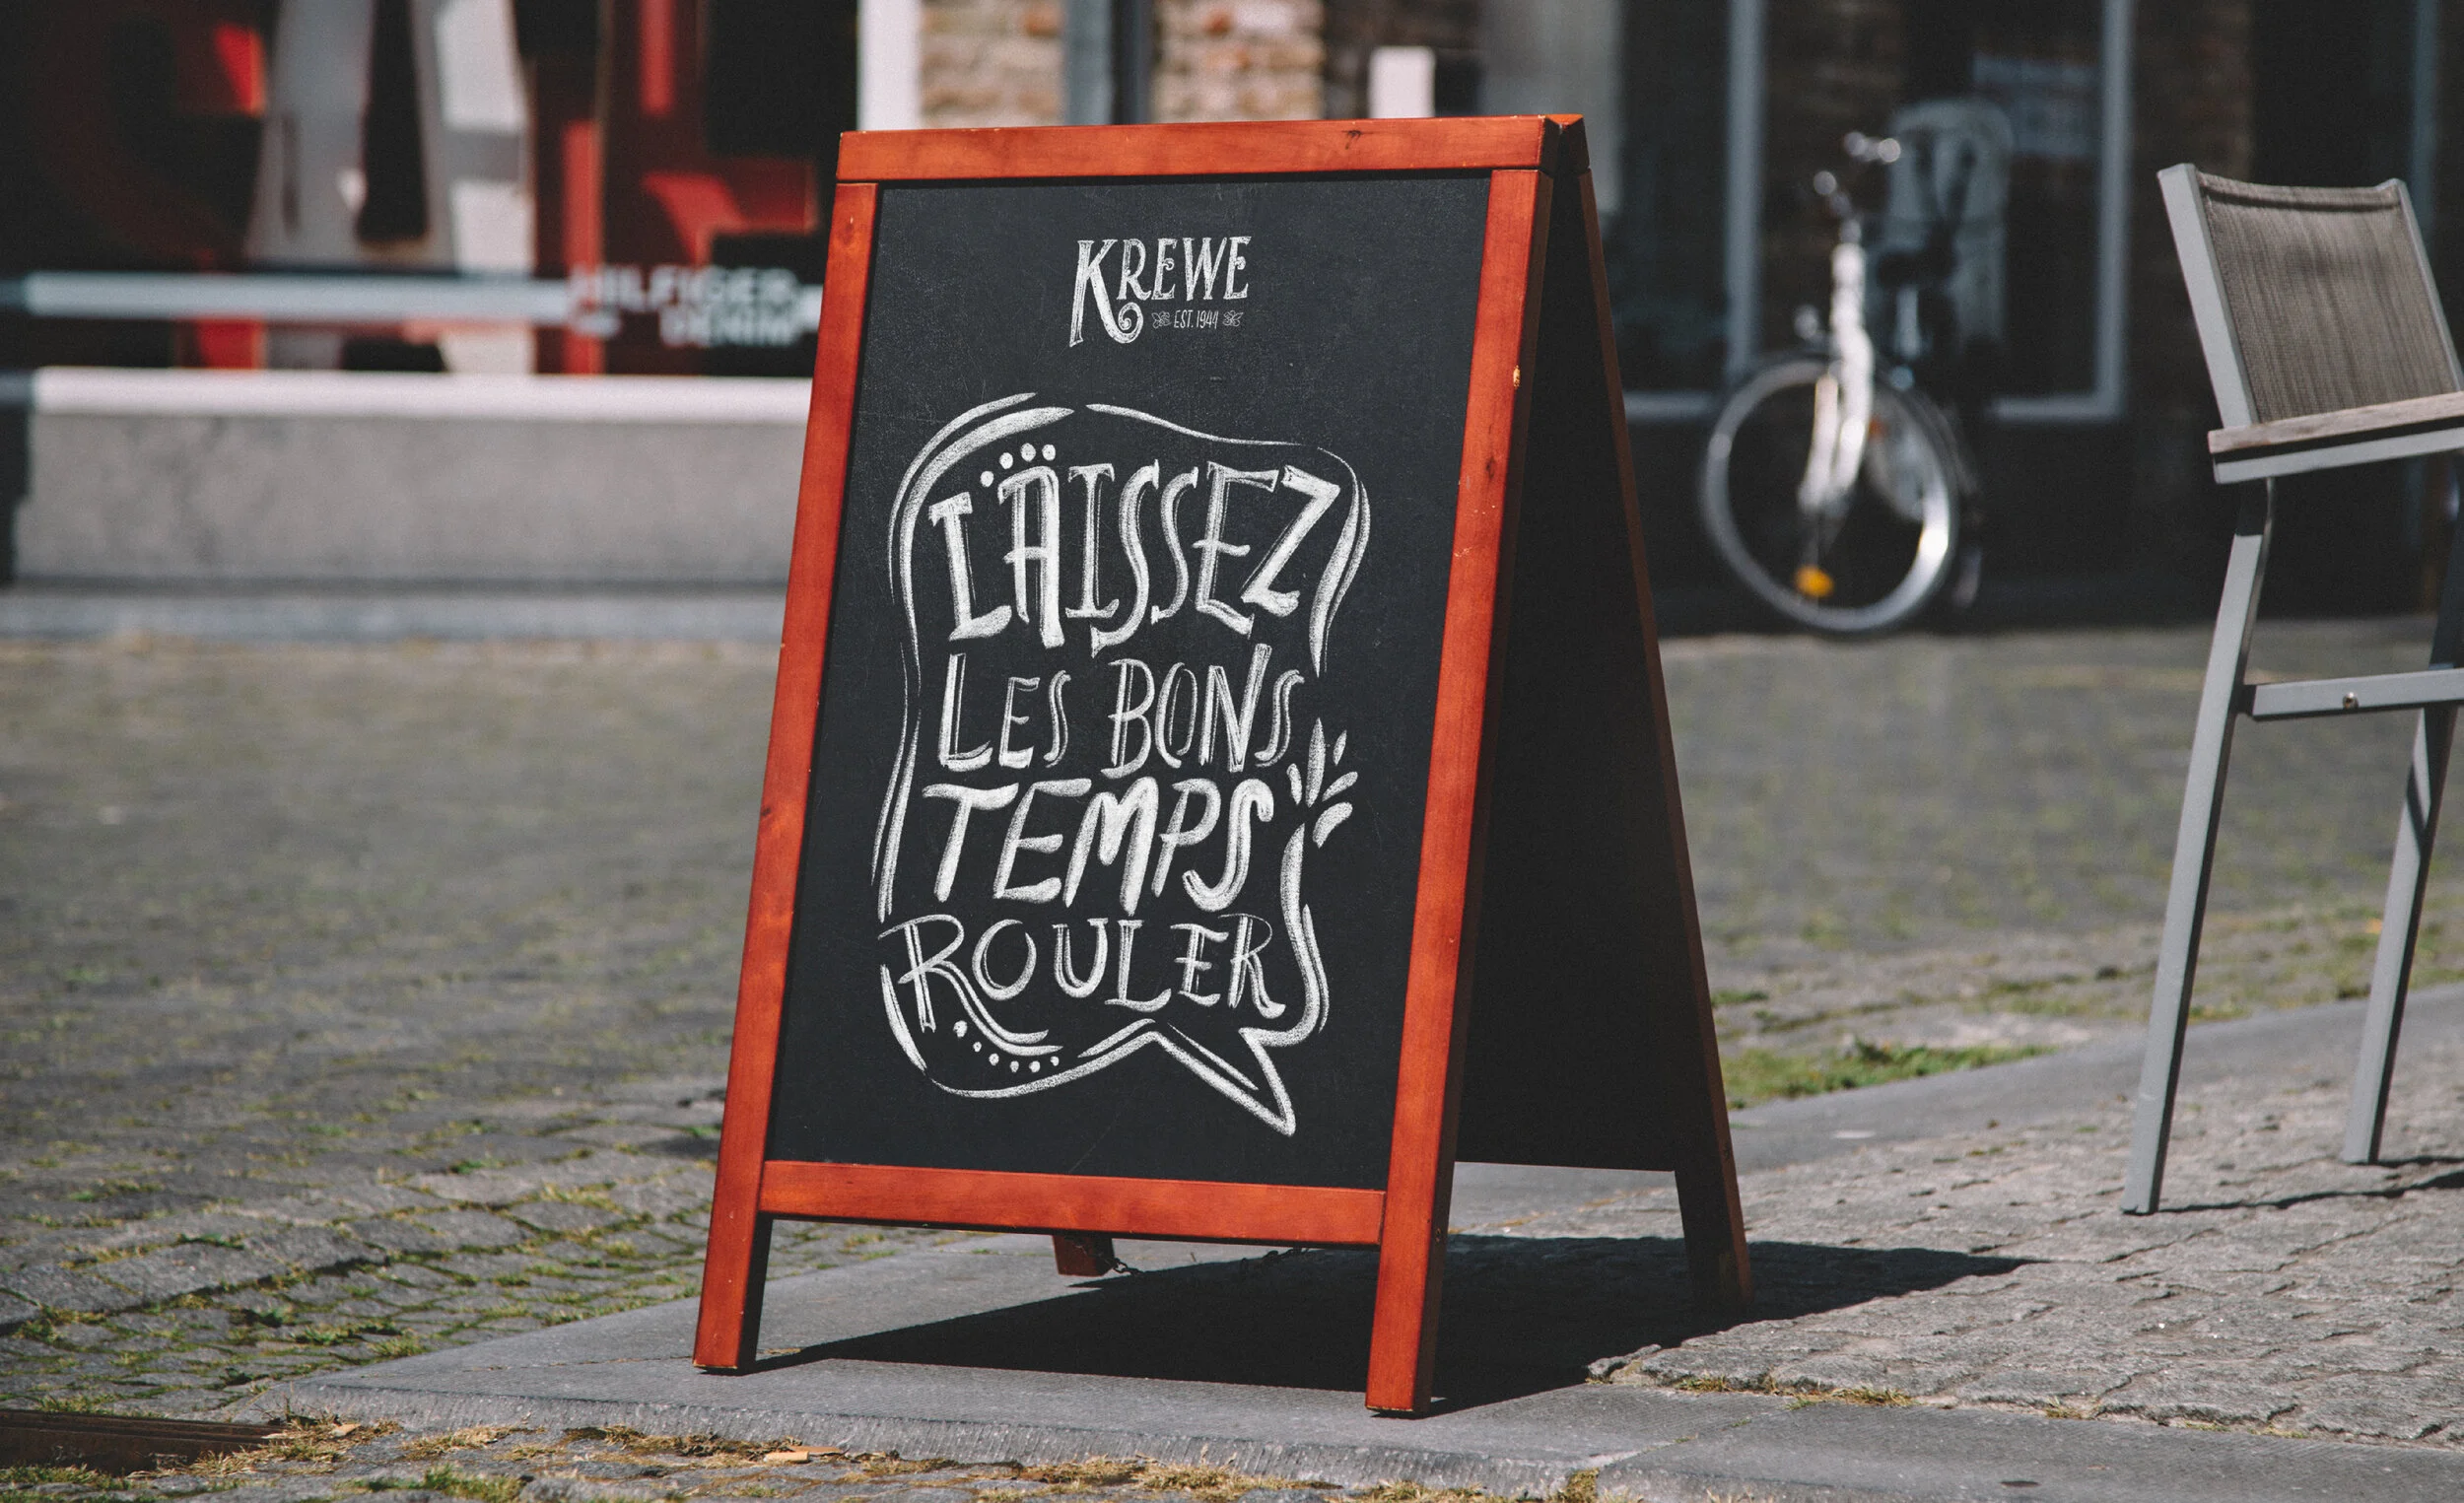 KREWE
EST. 1944
LAISSEZ
LES BONS
TEMPS
ROULER
HILFIGER
DENIM